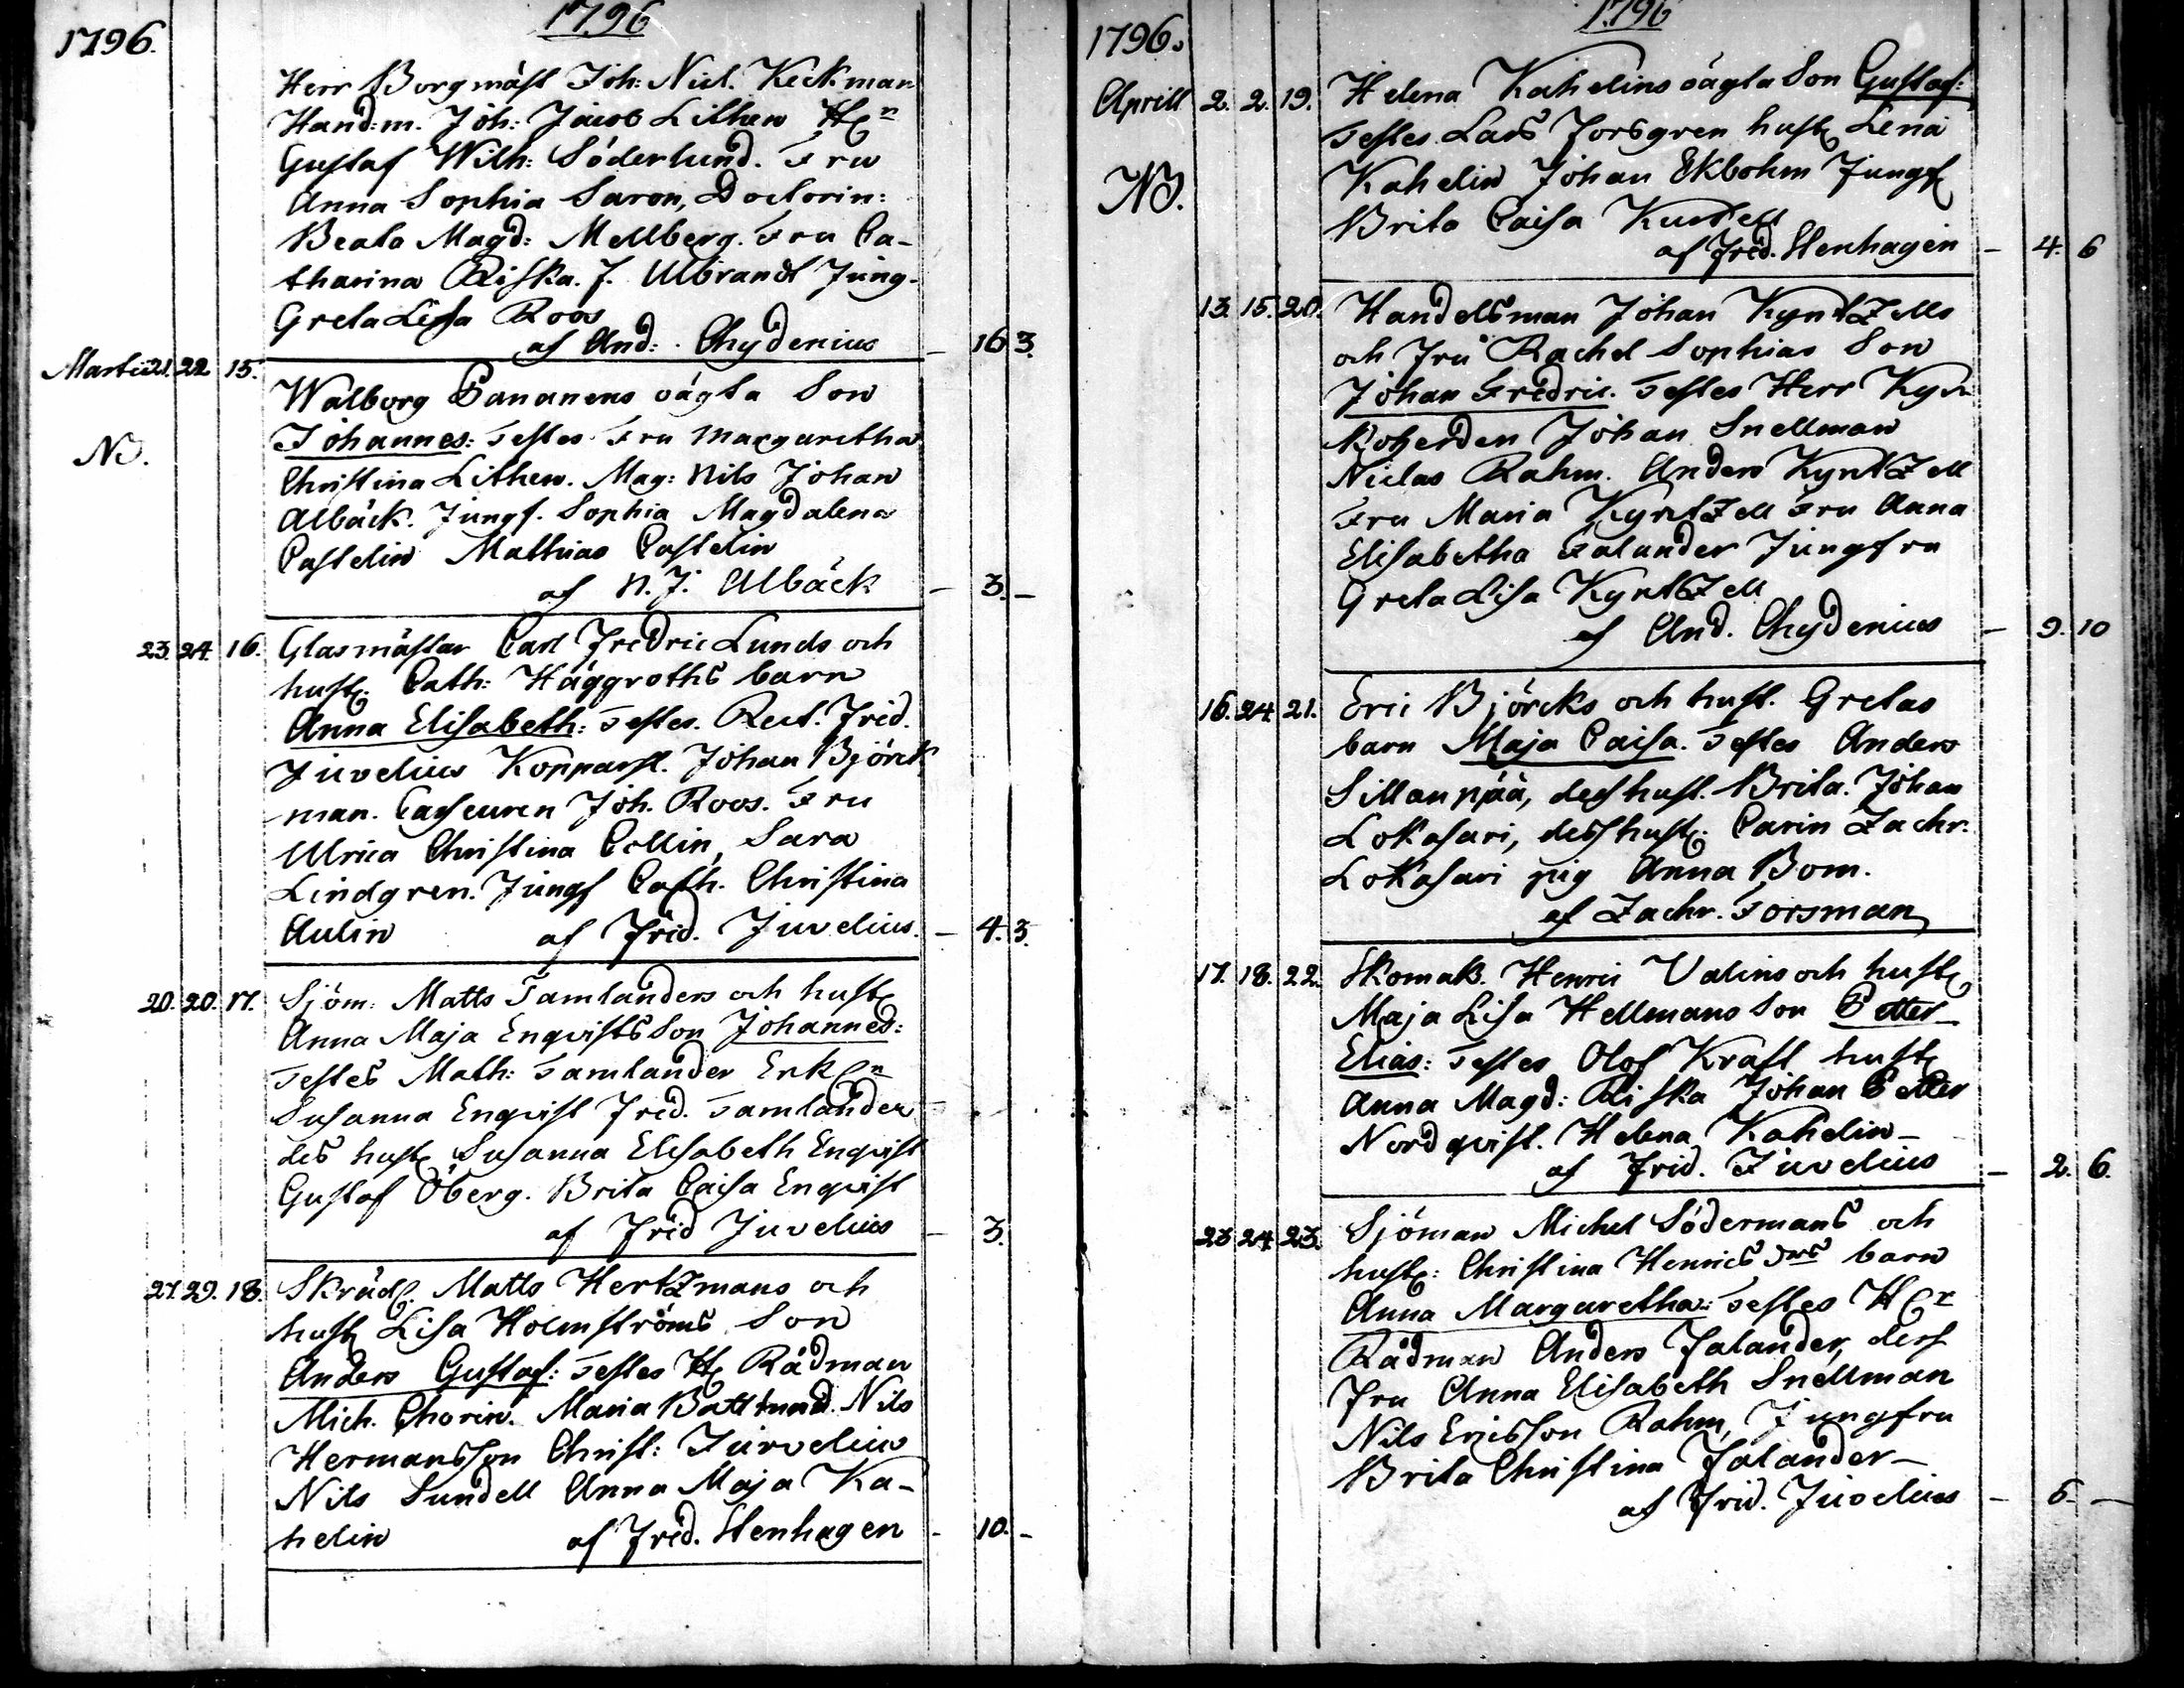 1796.
1796
Herr Borgmäst Joh: Nicl. Keckman
Hand:m. Joh: Jacob Lithen Hr
Gustaf Wilh: Söderlund. Fru
Anna Sophia Saron, Doctorin:
Beata Magd: Mellberg. Fru Ca-
tharina Riska. J. Albrandt Jung-
Greta Lisa Roos
af And: Chydenius — 16 3.
Martii 21. 22 15. Walborg Pananens oägta Son
Johannes: Testes Fru Margaretha
N. Christina Lithen. Mag: Nils Johan
Alback. Jungf. Sophia Magdalena
Castelin Mathias Castelin
af N. J. Alback — 3. —
23. 24. 16. Glasmästar Carl Fredric Lunds och
hust. Cath: Häggroths barn
Anna Elisabeth: Testes. Rect. Frid.
Juvelius Kopparsl. Johan Björck
man. Casseuren Joh. Roos. Fru
Ulrica Christina Collin, Sara
Lindgren. Jungf Cath. Christina
Aulin af Frid. Juvelius. — 4. 3.
20. 20. 17. Sjöm: Matts Tamlanders och hust
Anna Maja Enqvists Son Johannes:
Testes Math: Tamlander Enk
Susanna Enqvist Fred. Tamlander
des hust Susanna Elisabeth Enqvist
Gustaf Öberg. Brita Caisa Enqvist
af Frid Juvelius — 3.
27. 29. 18. Skräd. Matts Hertzmans och
hust Lisa Holmströms Son
Anders Gustaf: Testes H Rådman
Mich. Chorin. Maria Nils
Hermansson Christ: Jurvelin
Nils Sundell Anna Maja Ka-
helin af Frid. Stenhagen — 10. —
1796.
1796
Aprill 2. 2. 19. Helena Kahelins oägta Son Gustaf:
Testes Lars Forsgren hust Lena
N. Kahelin Johan Ekbohm Jungf
Brita Caisa
af Frid. Stenhagen — 4. 6
13. 15. 20. Handelsman Johan Kyntzells
och Fru Rachel Sophias Son
Johan Fredric. Testes Herr Kyr
koherden Johan Snellman
Niclas Rahm. Anders Kyntzell
Fru Maria Kyntzell Fru Anna
Elisabetha Falander Jungfru
Greta Lisa Kyntzell
af And. Chydenius — 9. 10
16. 24. 21. Eric Björcks och hust. Gretas
barn Maja Caisa. Testes Anders
Sillanpää, dess hust. Brita. Johan
Lokasari, dess hust. Carin Zachr.
Lokasari pig Anna Bom.
af Zachr. Forsman
17. 18. 22. Skomak. Henric Valins och hust
Maja Lisa Hellmans Son Petter
Elias: Testes Olof Kraft hust
Anna Magd: Riska Johan Petter
Nordqvist. Helena Kahelin —
af Frid. Juvelius — 2. 6.
23 24. 23. Sjöman Michel Södermans och
hust: Christina Henrics barn
Anna Margaretha: Testes Hr
Rådman Anders Falander, dess
Fru Anna Elisabeth Snellman
Nils Ericsson Rahm, Jungfru
Brita Christina Falander —
af Frid. Juvelius — 6. —